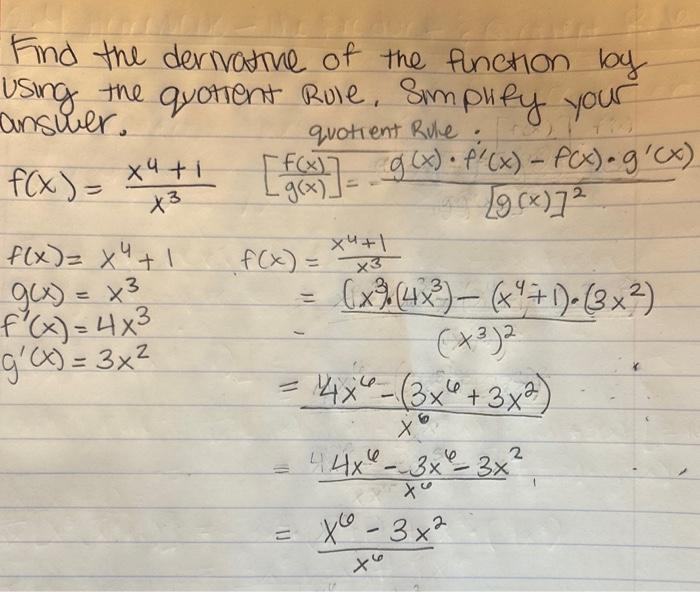 Find the derivative of the function by
using the quotient Rule. Simplify your
answer.
quotient Rule:
f(x) = x⁴+1 / x³
[f(x)/g(x)] = g(x)·f'(x) - f(x)·g'(x) / [g(x)]²
f(x) = x⁴+1
g(x) = x³
f'(x) = 4x³
g'(x) = 3x²
f(x) = x⁴+1 / x³
= (x³)·(4x³) - (x⁴+1)·(3x²) / (x³)²
= 4x⁶ - (3x⁶ + 3x²) / x⁶
= 4x⁶ - 3x⁶ - 3x² / x⁶
= x⁶ - 3x² / x⁶